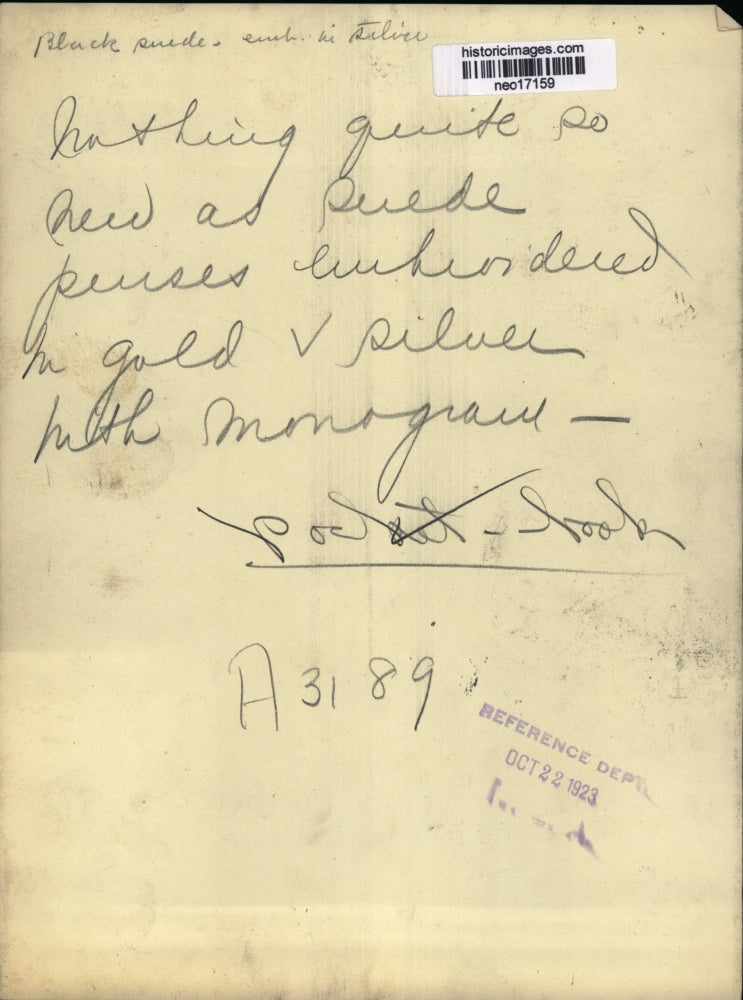 Black suede. emb. in silver
historicimages.com
neo17159
Nothing quite so
new as suede
purses embroidered
in gold & silver
with monogram —
pocket-book
A3189
REFERENCE DEPT.
OCT 22 1923